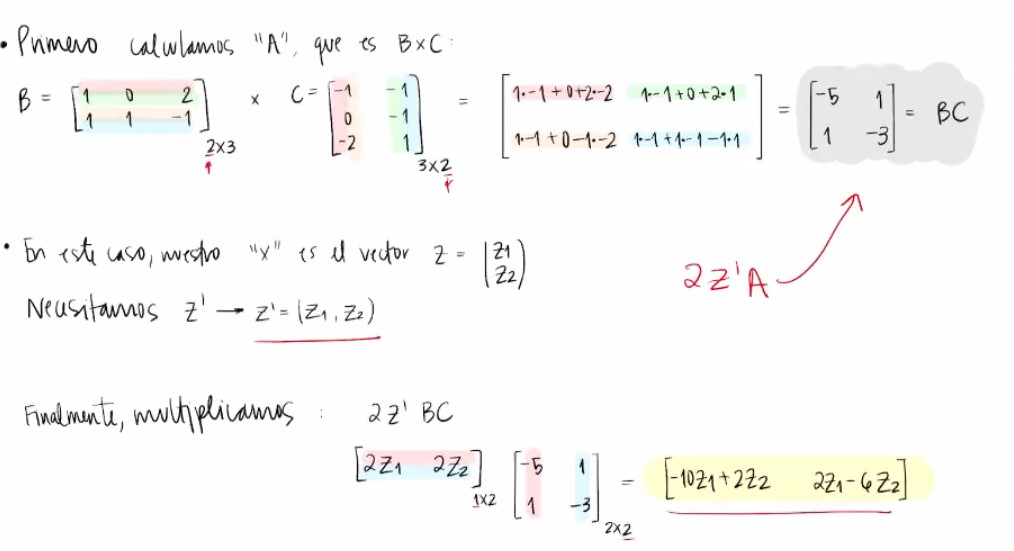 • Primero calculamos "A", que es B×C:
B = [1 0 2; 1 1 -1] 2x3 x C = [-1 -1; 0 -1; -2 1] 3x2 = [1·-1+0+2·-2 1·-1+0+2·1; 1·-1+0-1·-2 1·-1+1·-1-1·1] = [-5 1; 1 -3] = BC
• En este caso, nuestro "x" es el vector z = (z1; z2)
2z'A
Necesitamos z' → z' = (z1, z2)
Finalmente, multiplicamos : 2z' BC
[2z1 2z2] 1x2 [-5 1; 1 -3] 2x2 = [-10z1+2z2 2z1-6z2]